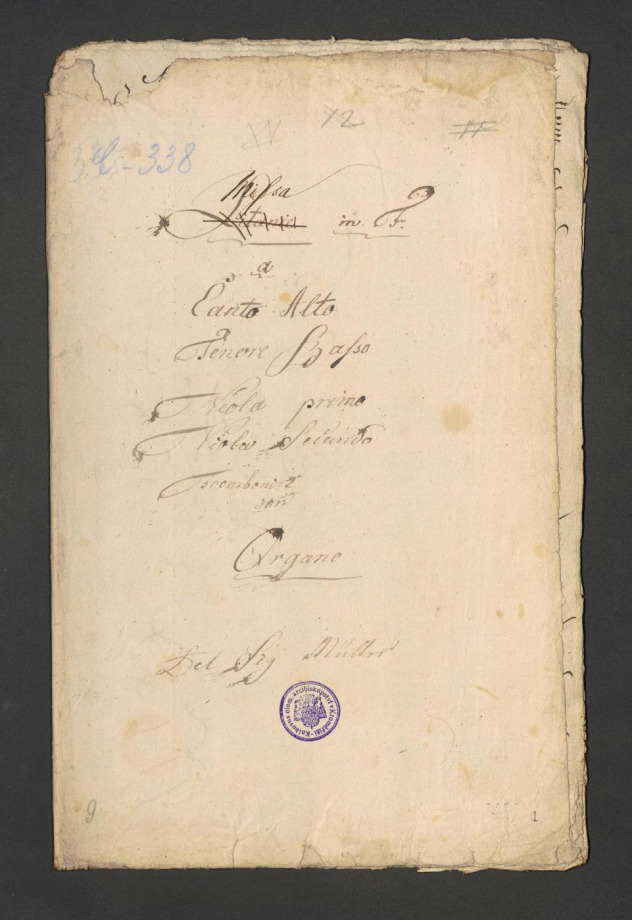 12
Li-338
Missa
Litania in F.
a
Canto Alto
Tenore Basso
Viola primo
Viola Secundo
Tromboni 2
con
Organo
Del Sig Müller
Knihovna olom. arcibiskupství v Kroměříži
9
1